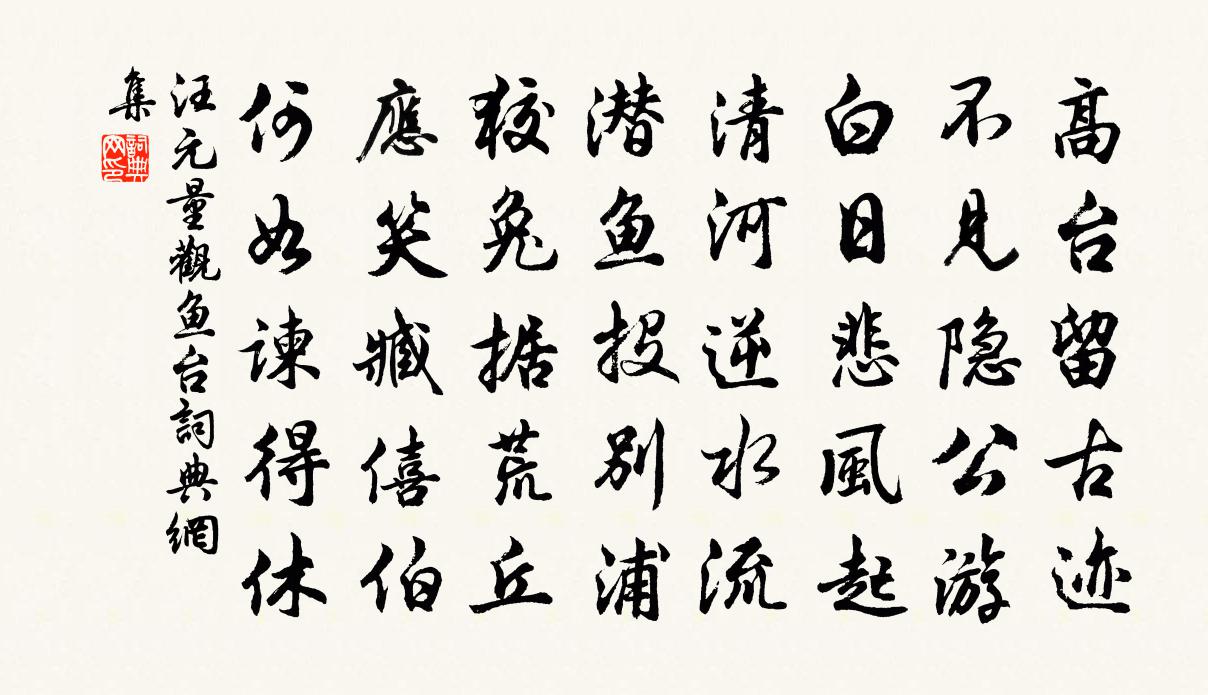 高台留古迹
不见隐公游
白日悲風起
清河逆水流
潜鱼投别浦
狡兔据荒丘
應笑臧僖伯
何如谏得休
汪元量觀鱼台詞典網
集
詞典网印